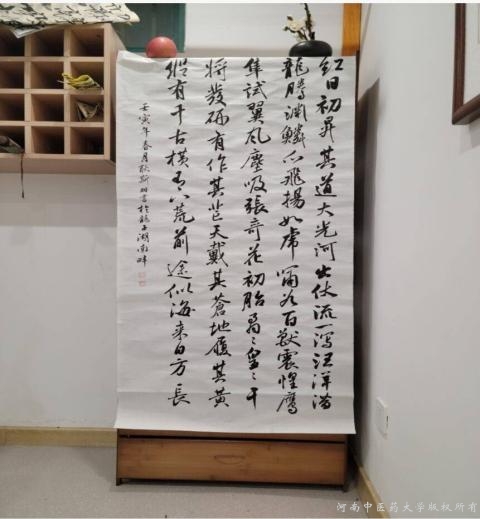 紅日初昇其道大光河出伏流一瀉汪洋潛
龍騰淵鱗爪飛揚乳虎嘯谷百獸震惶鷹
隼試翼風塵吸張奇花初胎矞〻皇〻干
將發硎有作其芒天戴其蒼地履其黃
縱有千古橫有八荒前途似海來日方長
壬寅年春月耿斯羽書於龍子湖南畔
河南中医药大学版权所有